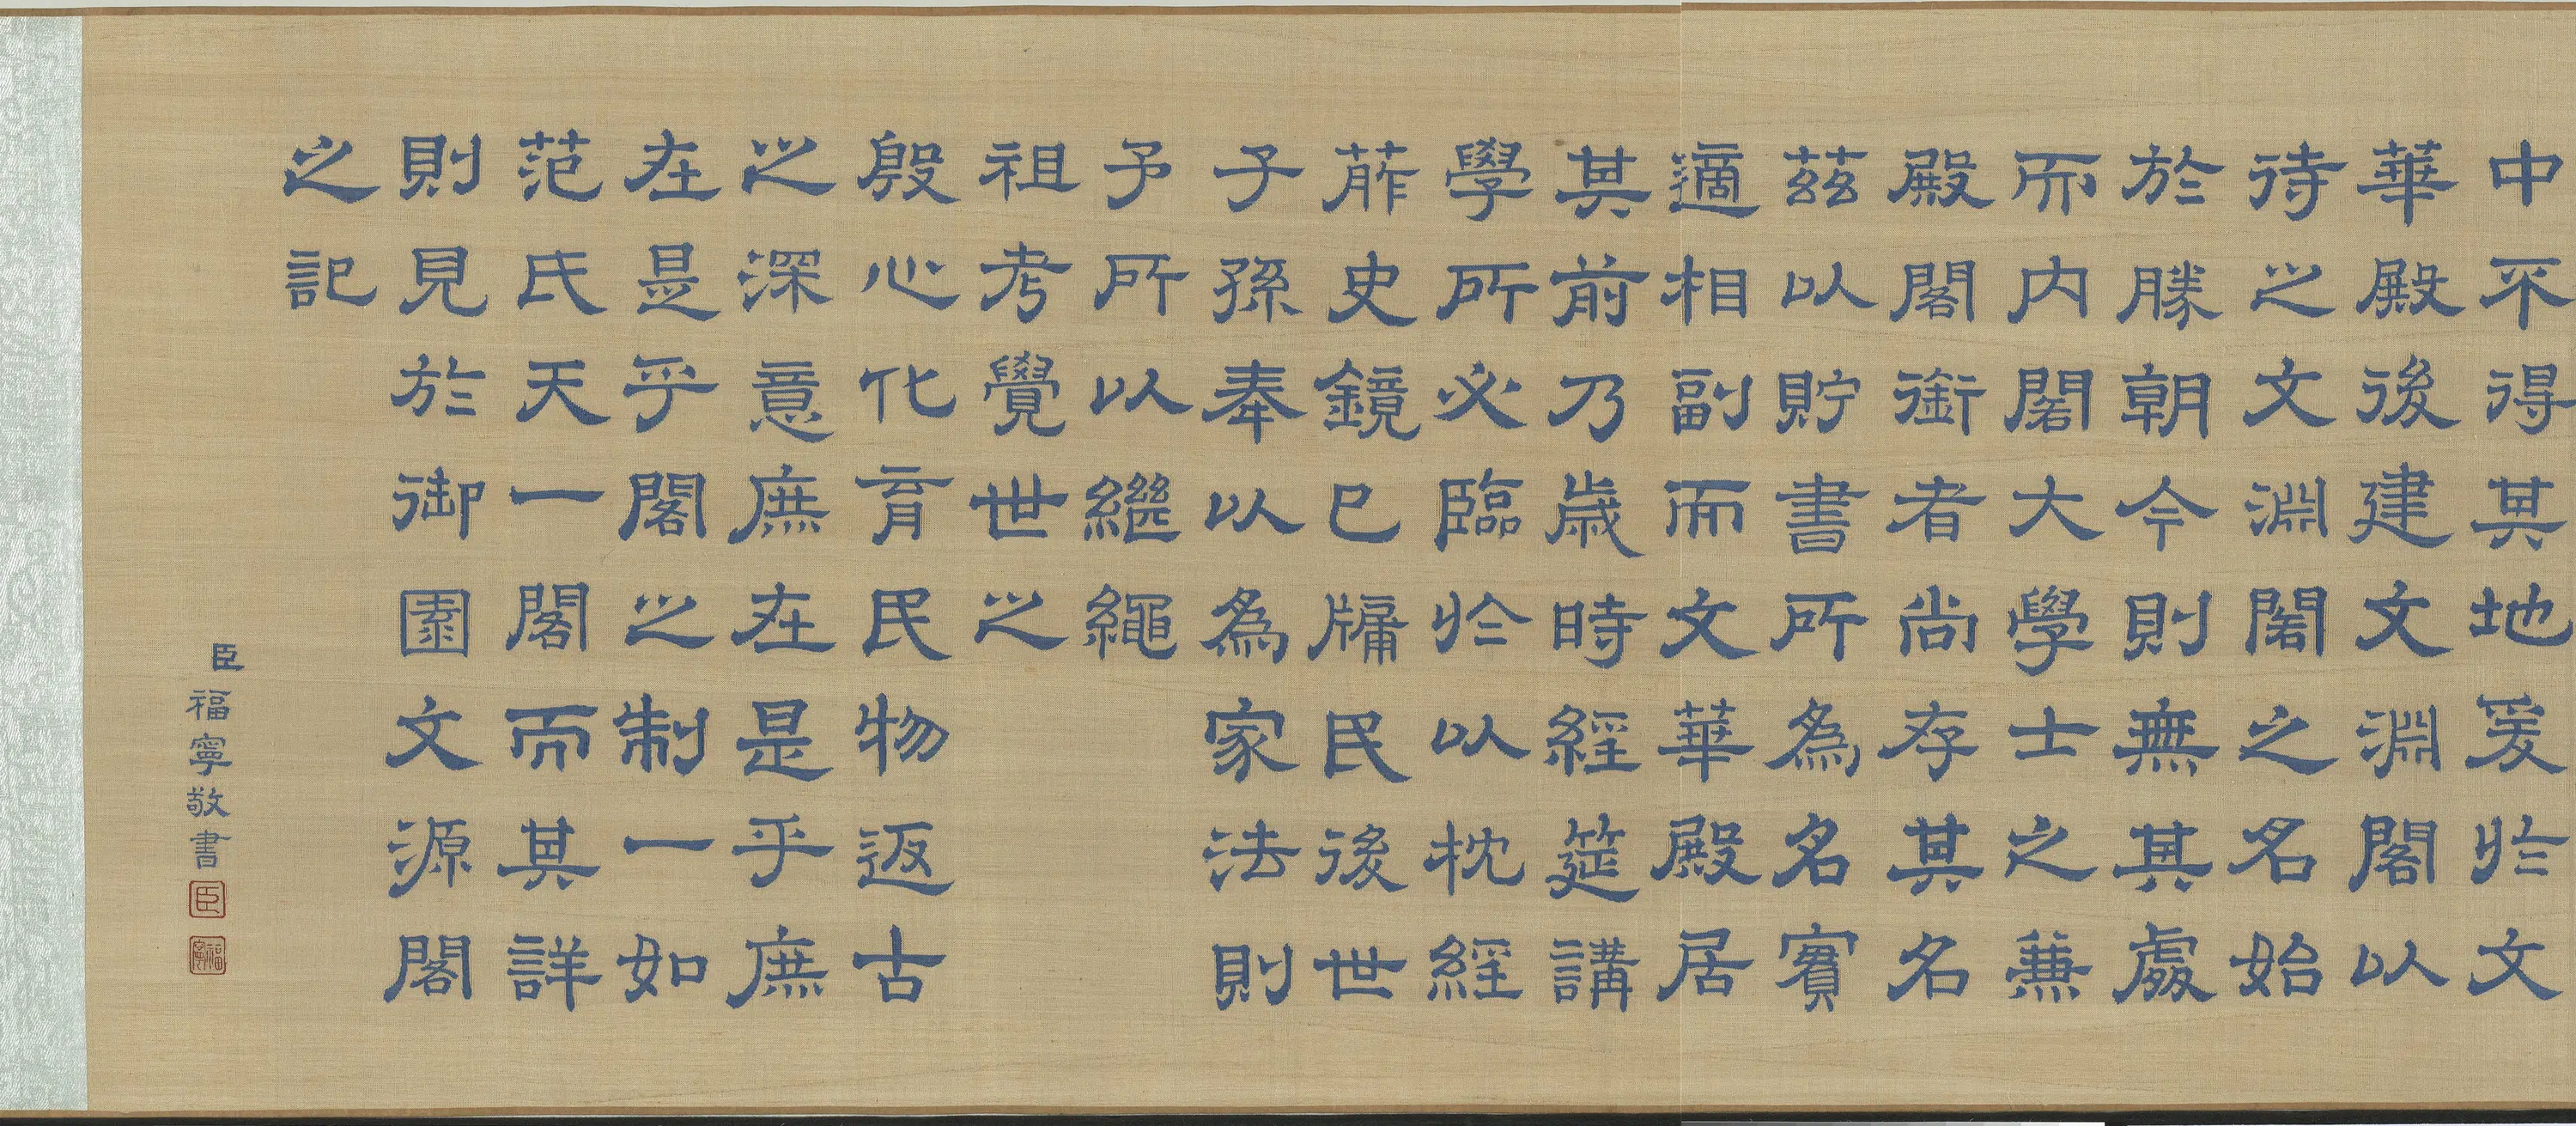 中不得其地爰於文
華殿後建文淵閣以
待之文淵閣之名始
於勝朝今則無其處
而内閣大學士之兼
殿閣銜者尚存其名
茲以貯書所為名實
適相副而文華殿居
其前乃歲時經筵講
學所必臨於以枕經
葄史鏡己牖民後世
子孫奉以為家法則
予所以繼繩
祖考覺世之
殷心化育民物返古
之深意庶在是乎庶
在是乎閣之制一如
范氏天一閣而其詳
則見於御園文源閣
之記
臣福寧敬書
臣
福寧